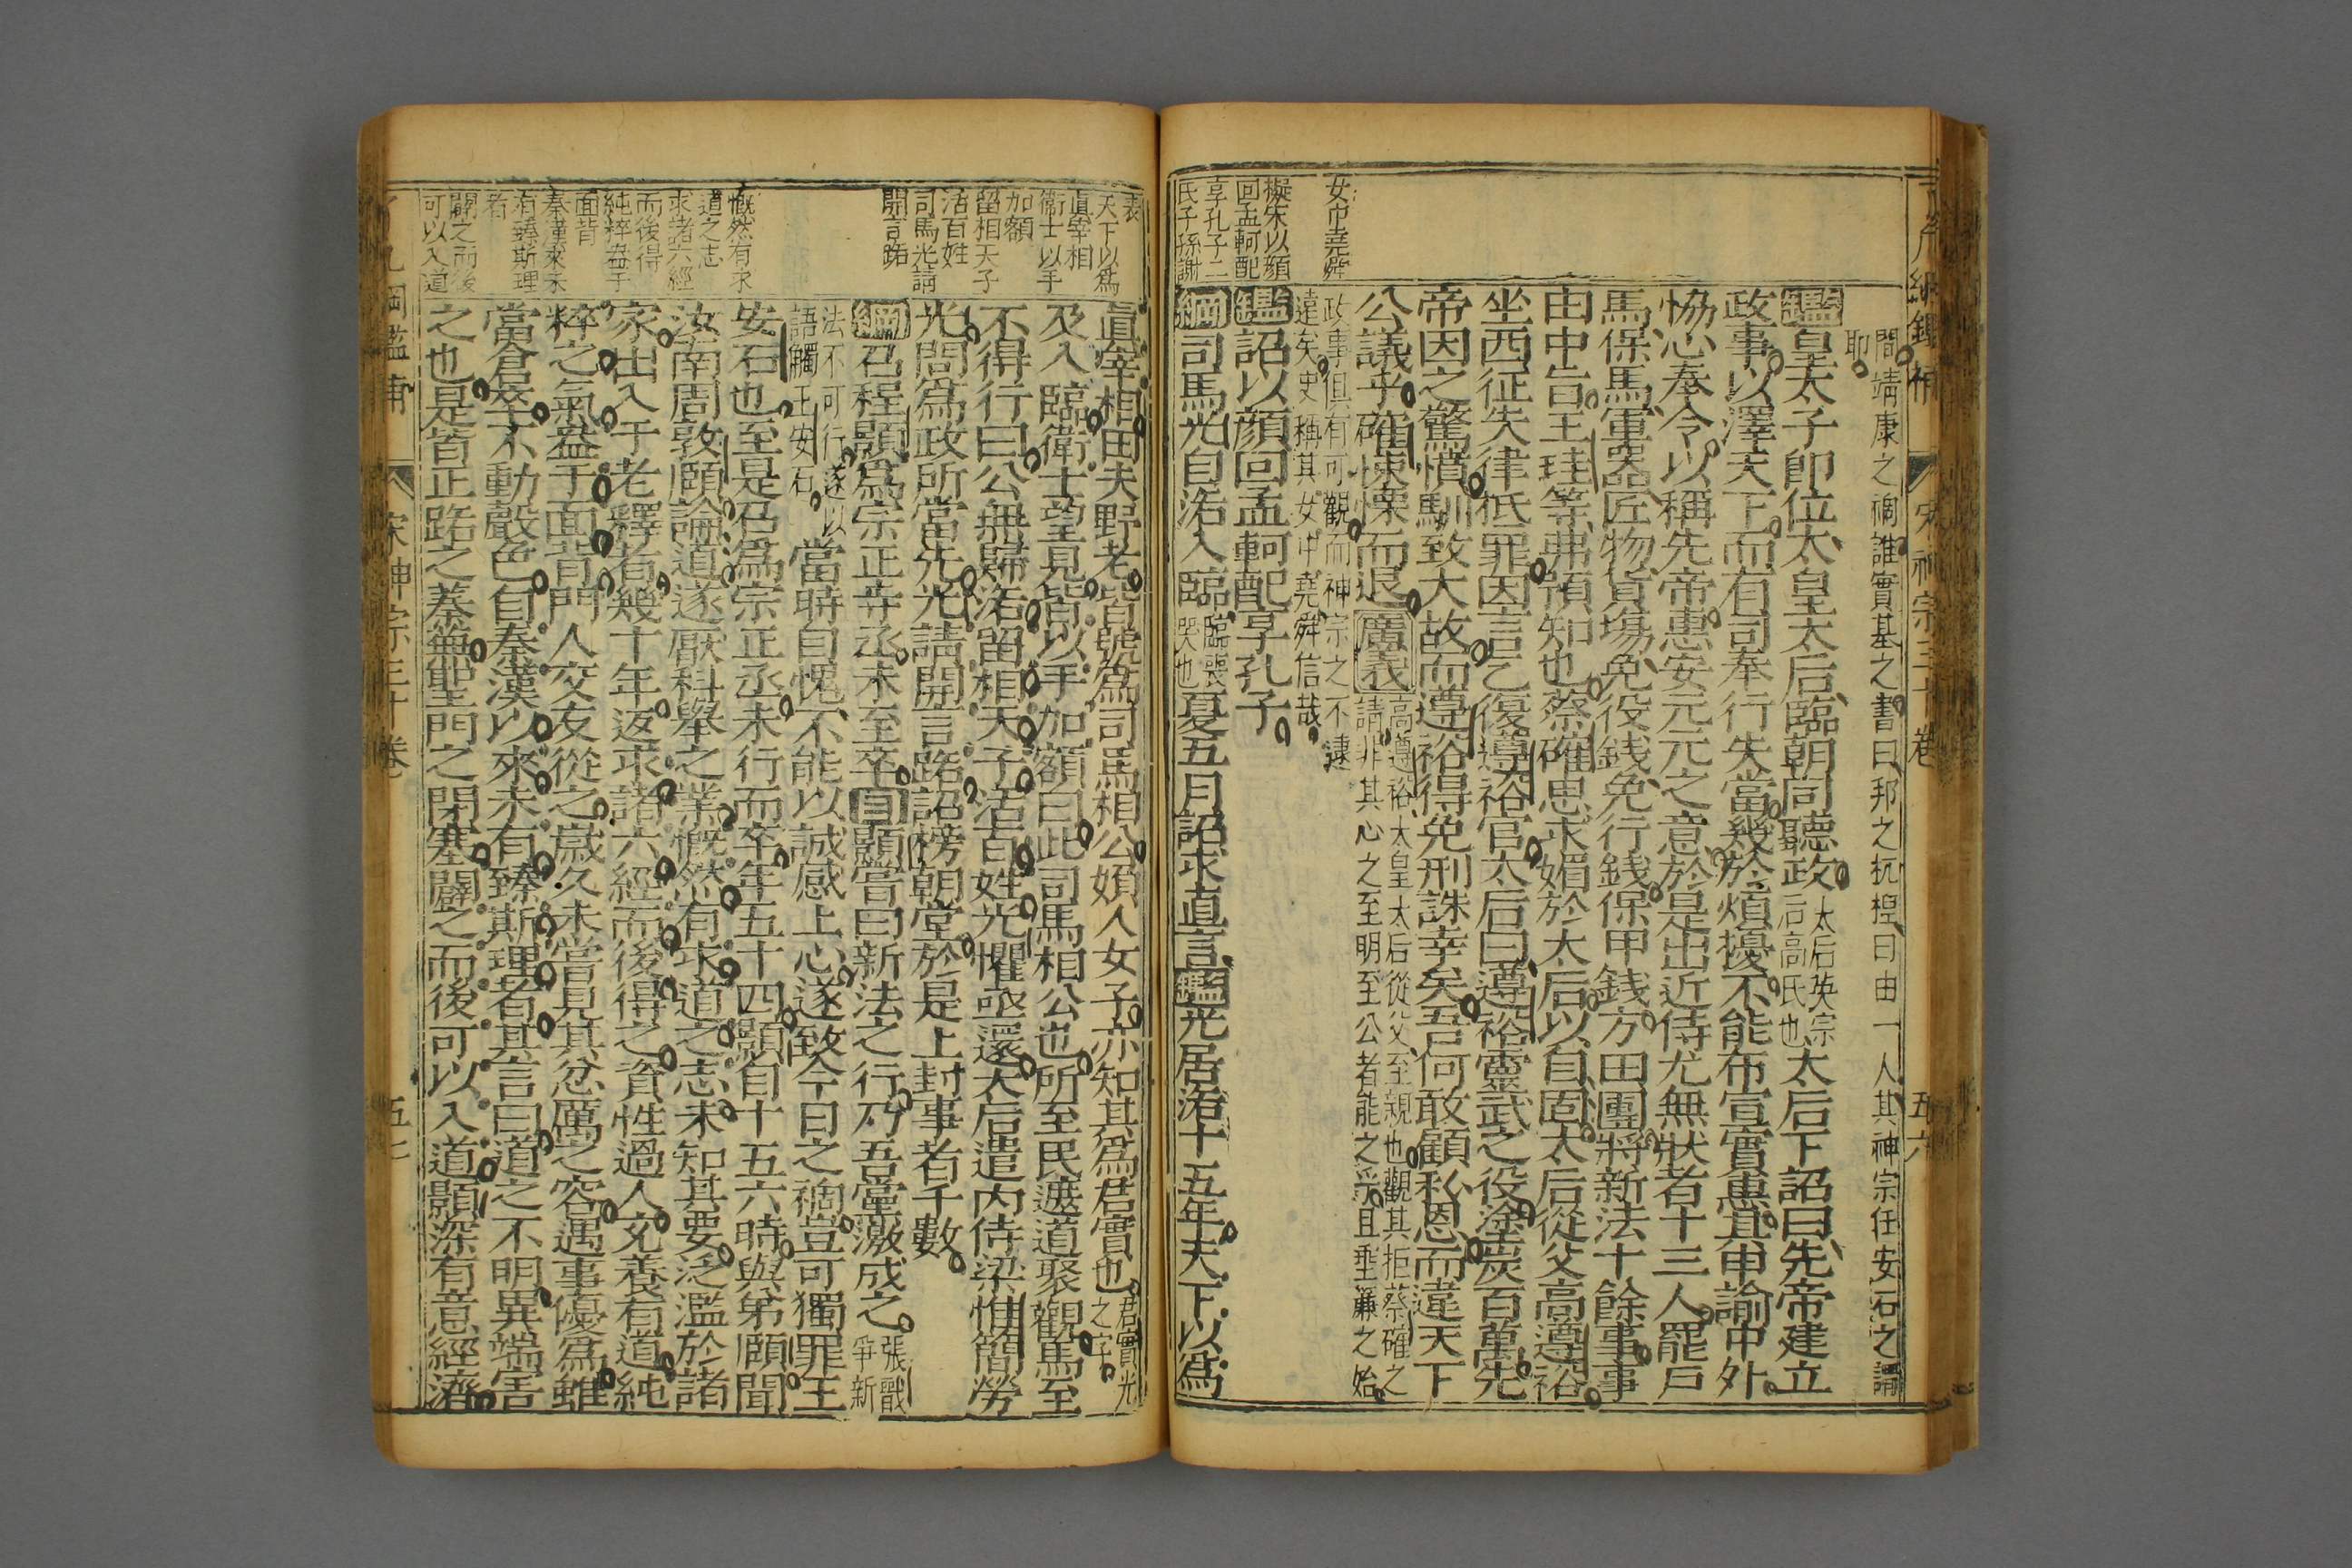 間靖康之禍誰實基之書曰邦之杌隉曰由一人其神宗任安石之謂
耶
鑑皇太子即位太皇太后臨朝同聽政太后英宗后高氏也太后下詔曰先帝建立
政事以澤天下而有司奉行失當幾於煩擾不能布宣實惠其申諭中外
恊心奉令以稱先帝惠安元元之意於是出近侍尤無狀者十三人罷戶
馬保馬軍器匠物貨塲免役錢免行錢保甲錢方田團將新法十餘事事
由中旨王珪等弗預知也蔡確思求媚於太后以自固太后從父高遵裕
坐西征失律抵罪因言乞復遵裕官太后曰遵裕靈武之役塗炭百萬先
帝因之驚憤馴致大故而遵裕得免刑誅幸矣吾何敢顧私恩而違天下
公議乎確悚慄而退廣義高遵裕太皇太后從父至親也觀其拒蔡確之
請非其心之至明至公者能之乎且垂簾之始
政事俱有可觀而神宗之不逮
遠矣史稱其女中堯舜信哉
鑑詔以顏回孟軻配享孔子
綱司馬光自洛入臨臨喪哭也夏五月詔求直言鑑光居洛十五年天下以為
女中堯舜
擬宋以顏
回孟軻配
享孔子二
氏子孫謝
表
宋神宗三十卷
五六
眞宰相田夫野老皆號為司馬相公婦人女子亦知其為君實也君實光之字
及入臨衛士望見皆以手加額曰此司馬相公也所至民遮道聚觀馬至
不得行曰公無歸洛留相天子活百姓光懼亟還太后遣內侍梁惟簡勞
光問為政所當先光請開言路詔榜朝堂於是上封事者千數
綱召程顥為宗正寺丞未至卒目顥嘗曰新法之行乃吾黨激成之張戩爭新
法不可行遂以
語觸王安石當時自愧不能以誠感上心遂致今日之禍豈可獨罪王
安石也至是召為宗正丞未行而卒年五十四顥自十五六時與弟頤聞
汝南周敦頤論道遂厭科舉之業慨然有求道之志未知其要泛濫於諸
家出入于老釋者幾十年返求諸六經而後得之資性過人充養有道純
粹之氣盎于面背門人交友從之歲久未嘗見其忿厲之容遇事優為雖
當倉卒不動聲色自秦漢以來未有臻斯理者其言曰道之不明異端害
之也是皆正路之蓁蕪聖門之閉塞闢之而後可以入道顥深有意經濟
天下以為
眞宰相
衛士以手
加額
留相天子
活百姓
司馬光請
開言路
慨然有求
道之志
求諸六經
而後得
純粹盎于
面背
秦漢來未
有臻斯理
者
闢之而後
可以入道
綱鑑補
宋神宗三十卷
五七